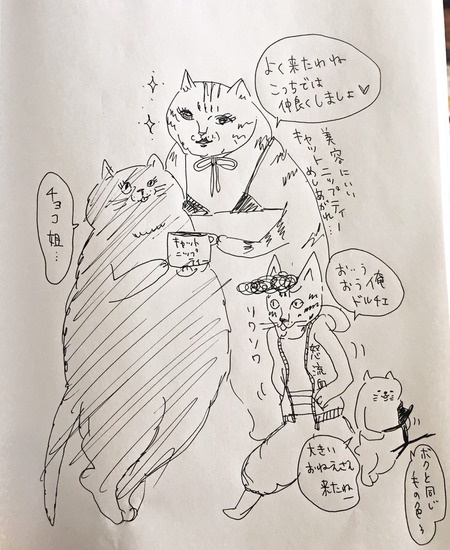 よく来たわね
こっちでは
仲良くしましょ♡
美容にいい
キャットニップティー
めしあがれ…
チョコ
姐…
キャット
ニップ
ティー
おぅ
おぅ俺
ドルチェ
ソワソワ
怒流
大きい
おねえさん
来たねー
ボクと同じ
もの色…